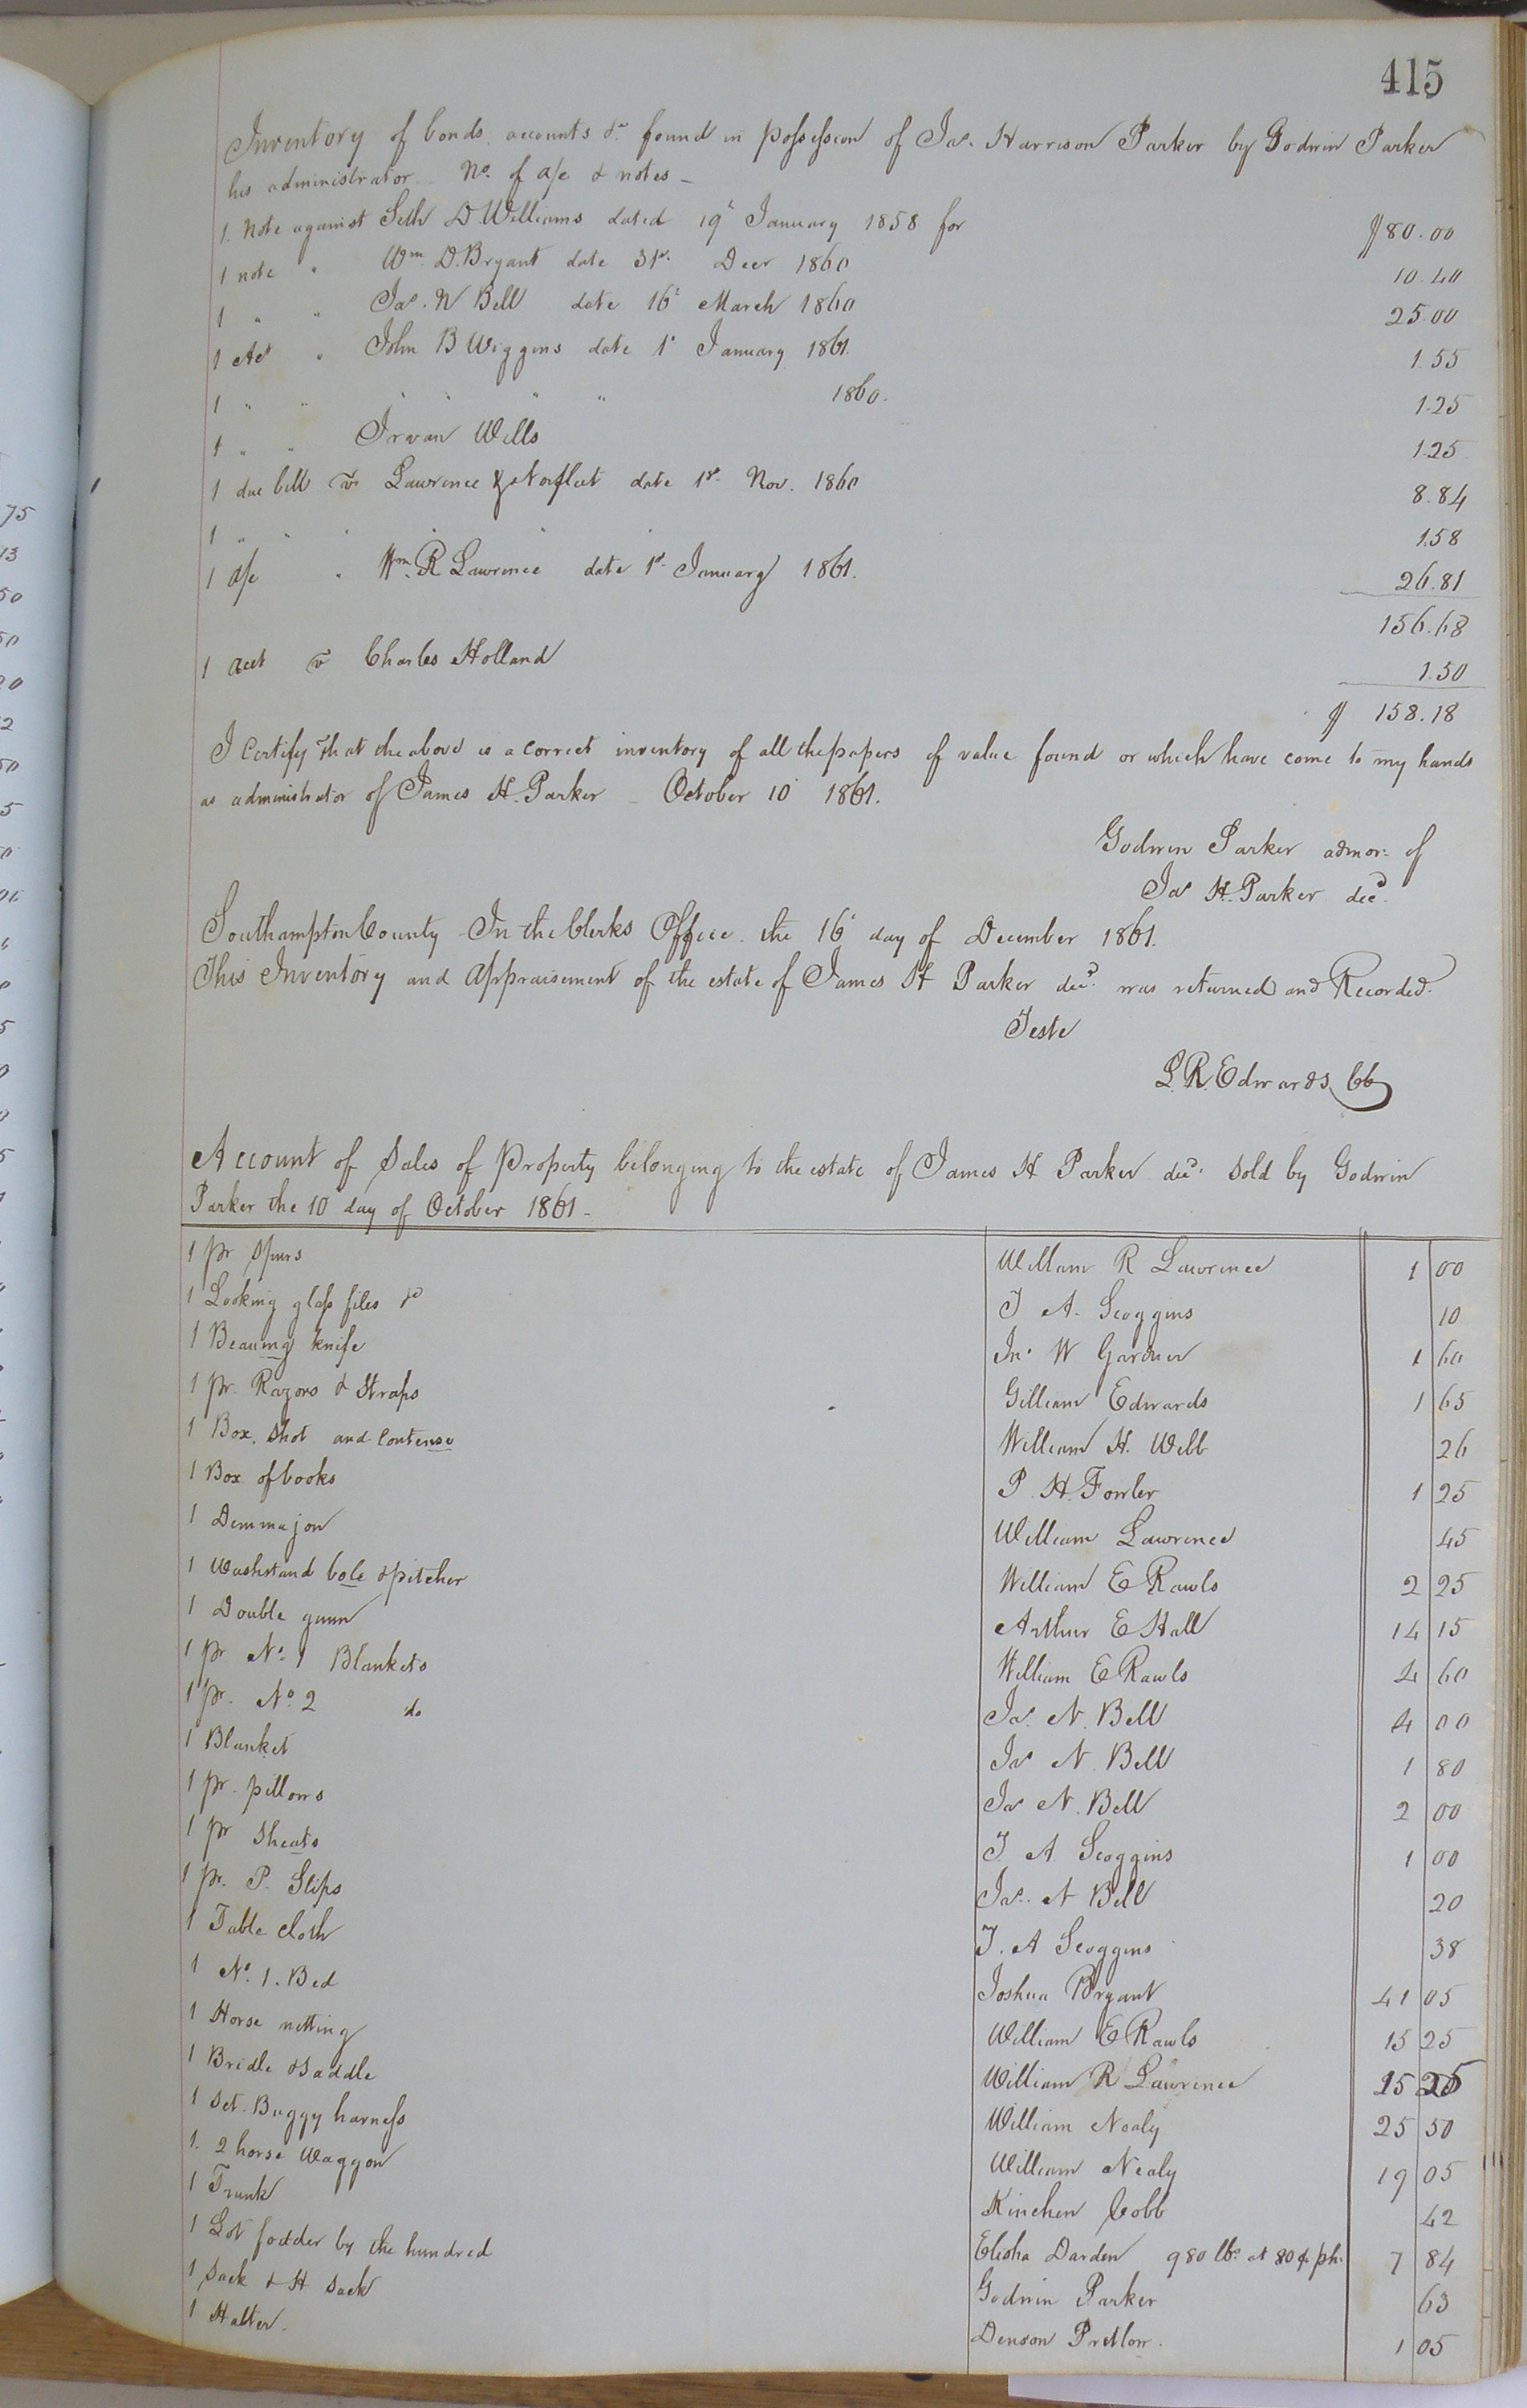 415
Inventory of bonds accounts &c found in possession of Jas. Harrison Parker by Godwin Parker
his administrator - No. of a/c & notes -
1. Note against Seth D. Williams dated 19th January 1858 for $80.00
1 note " Wm. D. Bryant date 31st. Decr 1860 10.40
1 " " Jas. N Bell date 16th March 1860 25.00
1 Act " John B Wiggins date 1st January 1861. 1.55
1 " " " " " " 1860. 1.25
1 " " Irvan Wills 1.25
1 due bill vs Lawrence & Norfleet date 1st. Nov. 1860 8.84
1 " " " " " " 1.58
1 a/c " Wm. R Lawrence date 1st January 1861. 26.81
156.68
1 acct vs Charles Holland 1.50
$ 158.18
I Certify That the above is a correct inventory of all the papers of value found or which have come to my hands
as administrator of James H. Parker - October 10th 1861.
Godwin Parker admor. of
Jas H. Parker decd.
Southampton County In the Clerks Office the 16th day of December 1861.
This Inventory and Appraisement of the estate of James H Parker decd. was returned and Recorded.
Teste
L. R. Edwards CC
Account of Sales of Property belonging to the estate of James H Parker decd. Sold by Godwin
Parker the 10 day of October 1861 -
1 pr spurs William R Lawrence 1 00
1 Looking glass files &c T A. Scoggins 10
1 Beauing knife Jno. W Gardner 1 60
1 pr. Razors & Straps Gilliam Edwards 1 65
1 Box, Shot and Contense William H. Webb 26
1 Box of books P. H. Fowler 1 25
1 Demmajon William Lawrence 45
1 Washstand bole & pitcher William E Rawls 2 25
1 Double gunn Arthur E Hall 14 15
1 pr No. 1 Blankets William E Rawls 4 60
1 pr. No. 2 do Jas. N. Bell 4 00
1 Blanket Jas N. Bell 1 80
1 pr. pillows Jas N. Bell 2 00
1 pr Sheats T. A Scoggins 1 00
1 pr. P. Slips Jas. N Bell 20
1 Table cloth T. A Scoggins 38
1 No. 1. Bed Joshua Bryant 41 05
1 Horse netting William E Rawls 15 25
1 Bridle & Saddle William R Lawrence 15 25
1 Set. Buggy harness William Nealy 25 50
1. 2 horse Waggon William Nealy 19 05
1 Trunk Kinchen Cobb 42
1 Lot fodder by the hundred Elisha Darden 980 lbs. at 80¢ ph. 7 84
1 Sack & H Sack Godwin Parker 63
1 Halter. Denson Pretlow. 1 05